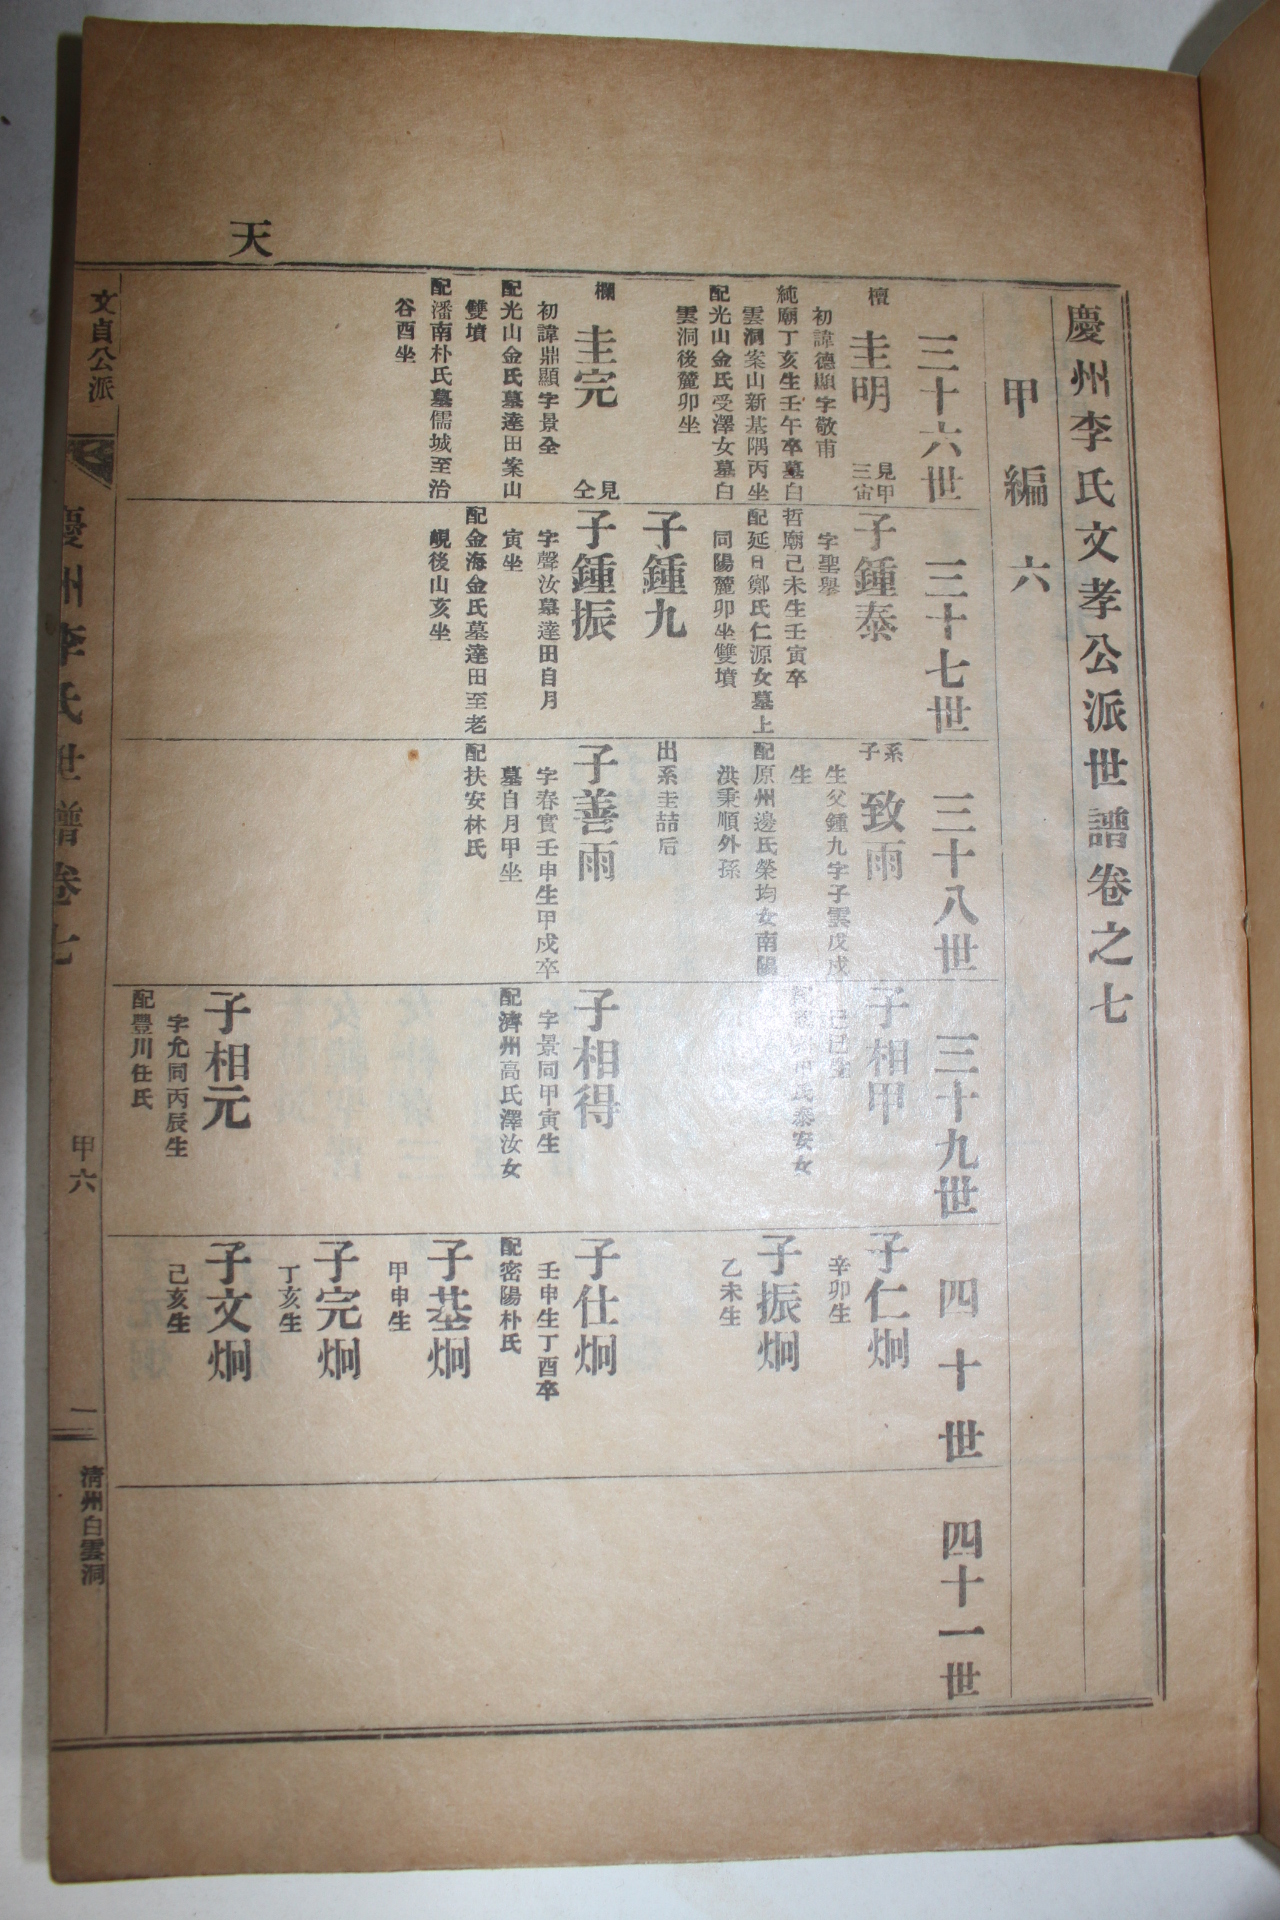 慶州李氏文孝公派世譜卷之七
甲編 六
三十六世
三十七世
三十八世
三十九世
四十世
四十一世
檀
圭明
見甲
三宙
初諱德顯字敬甫
純廟丁亥生壬午卒墓白
雲洞案山新基隅丙坐
配光山金氏受澤女墓白
雲洞後麓卯坐
欄
圭完
見
仝
初諱鼎顯字景全
配光山金氏墓達田案山
雙墳
配潘南朴氏墓儒城至治
谷酉坐
子鍾泰
字聖擧
哲廟己未生壬寅卒
配延日鄭氏仁源女墓上
同陽麓卯坐雙墳
子鍾九
子鍾振
字聲汝墓達田自月
寅坐
配金海金氏墓達田至老
峴後山亥坐
系
子
致雨
生父鍾九字子雲戊戌
生
配原州邊氏榮均女南陽
洪秉順外孫
出系圭喆后
子善雨
字春實壬申生甲戌卒
墓自月甲坐
配扶安林氏
子相甲
己巳生
氏泰安女
子相得
字景同甲寅生
配濟州高氏澤汝女
子相元
字允同丙辰生
配豐川任氏
子仁炯
辛卯生
子振炯
乙未生
子仕炯
壬申生丁酉卒
配密陽朴氏
子基炯
甲申生
子完炯
丁亥生
子文炯
己亥生
天
文貞公派
慶州李氏世譜卷七
甲六
一
淸州白雲洞